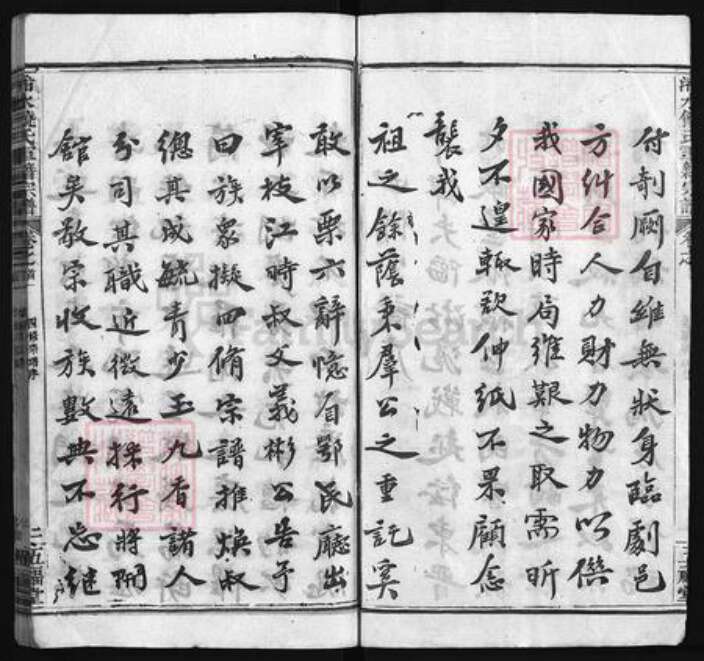 付剞劂自維無狀身臨劇邑
方糾合人力財力物力以供
我國家時局維艱之取需昕
夕不遑輒欲伸紙不果顧念
襲我
祖之餘蔭秉羣公之重託奚
敢以栗六辭憶眉鄂民廳出
宰枝江時叔父義彬公告予
曰族衆擬四脩宗譜推煥叔
總其成毓青少玉九香諸人
分司其職近徵遠採行將開
館矣敬宗收族數典不忘繼
五福堂